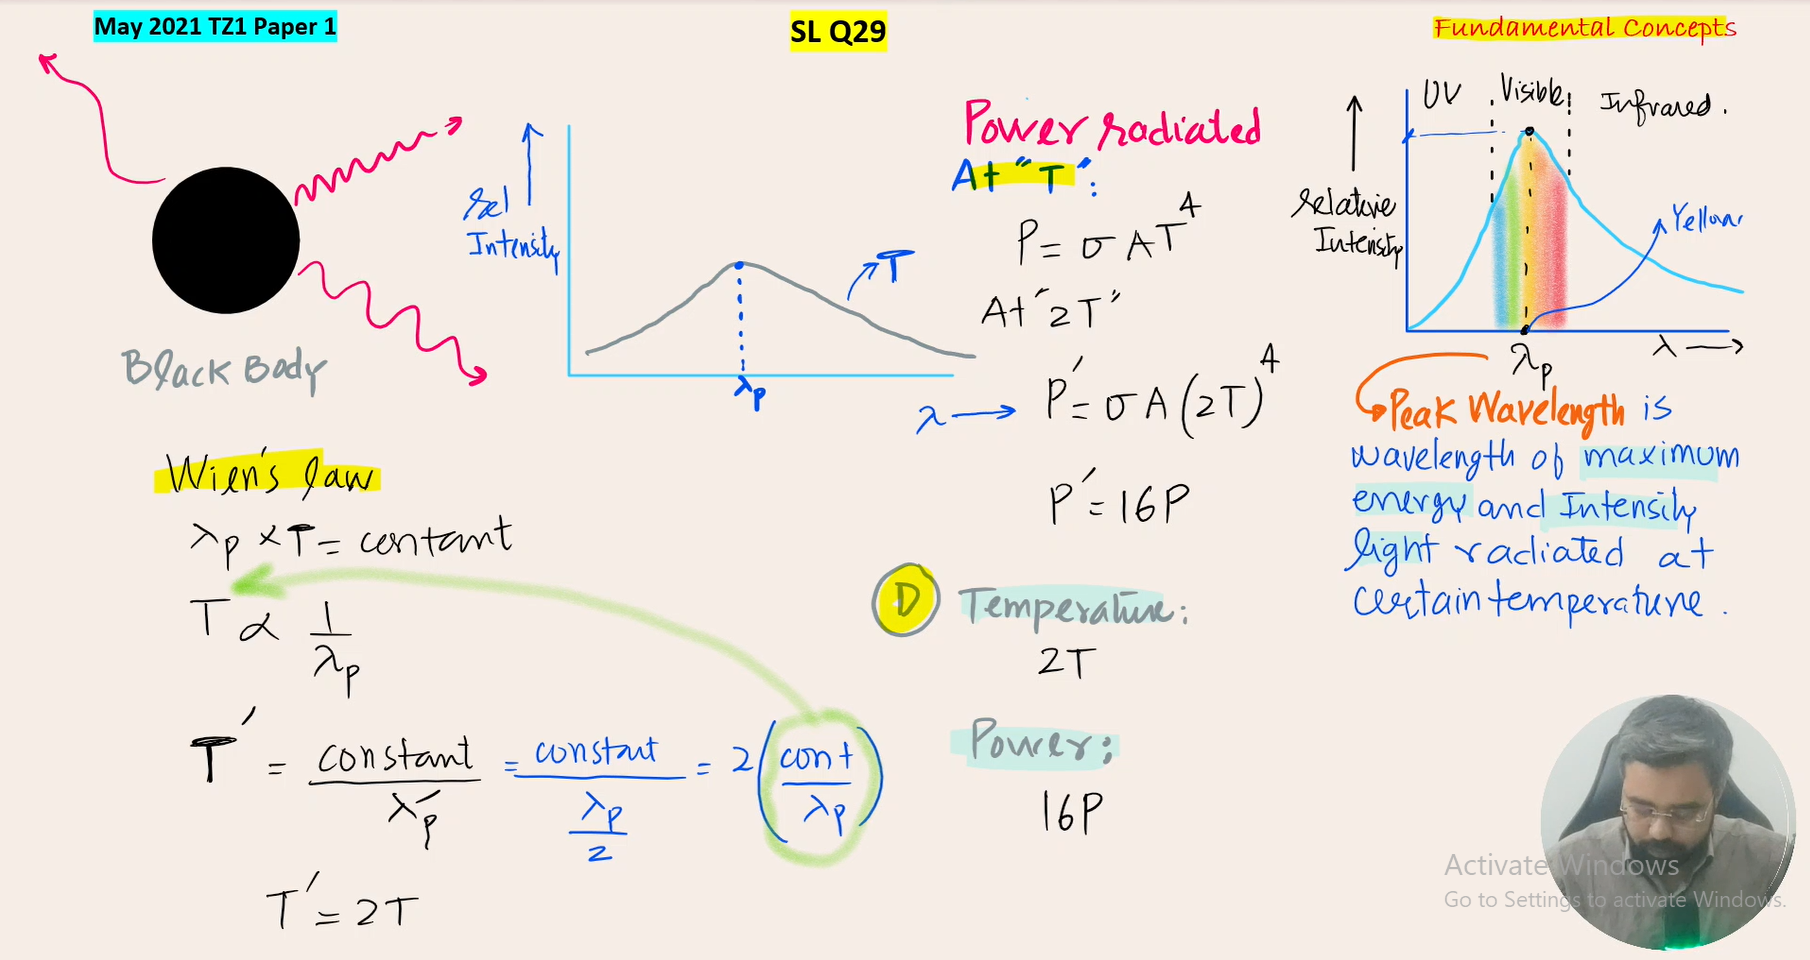 May 2021 TZ1 Paper 1
SL Q29
Fundamental Concepts
Black Body
Rel
Intensity
T
λp
λ
Power radiated
At "T":
P = σAT⁴
At "2T"
P' = σA(2T)⁴
P' = 16P
D
Temperature:
2T
Power:
16P
UV
Visible
Infrared.
Relative
Intensity
Yellow
λp
λ
Peak Wavelength is
wavelength of maximum
energy and Intensity
light radiated at
certain temperature.
Wien's law
λp × T = contant
T ∝ 1/λp
T' = constant/λp' = constant/(λp/2) = 2(cont/λp)
T' = 2T
Activate Windows
Go to Settings to activate Windows.